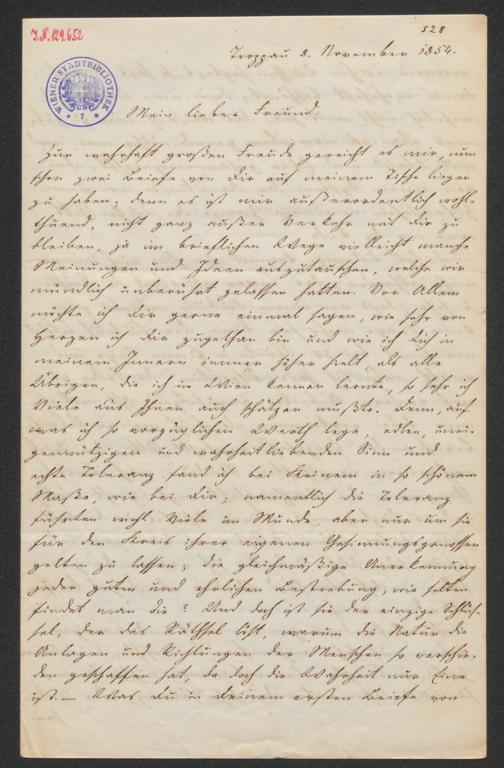 J.N. 129.652
528
WIENER STADTBIBLIOTHEK
7
Troppau 8. November 1854.
Mein lieber Freund!
Zur wahrhaft großen Freude gereicht es mir, nun
schon zwei Briefe von Dir auf meinem Tische liegen
zu haben; denn es ist mir außerordentlich wohl-
thuend, nicht ganz außer Verkehr mit Dir zu
bleiben, ja im brieflichen Wege vielleicht manche
Meinungen und Ideen auszutauschen, welche wir
mündlich unberührt gelassen hatten. Vor Allem
möchte ich Dir gerne einmal sagen, wie sehr von
Herzen ich Dir zugethan bin und wie ich Dich in
meinem Innern immer höher hielt als alle
Übrigen, die ich in Wien kennen lernte, so sehr ich
Viele aus Ihnen auch schätzen mußte. Denn, auf
was ich so vorzüglichen Werth lege, edlen, unei-
gennützigen und wahrheitliebenden Sinn und
echte Toleranz fand ich bei Keinem in so schönem
Maße, wie bei Dir; namentlich die Toleranz
führten wohl Viele im Munde, aber nur um sie
für den Kreis ihrer eigenen Gesinnungsgenossen
gelten zu lassen; die gleichmäßige Anerkennung
jeder guten und ehrlichen Bestrebung, wie selten
findet man die? Und doch ist sie der einzige Schlüs-
sel, der das Räthsel löst, warum die Natur die
Anlagen und Richtungen der Menschen so verschie-
den geschaffen hat, da doch die Wahrheit nur Eine
ist. — Was Du in Deinem ersten Briefe von